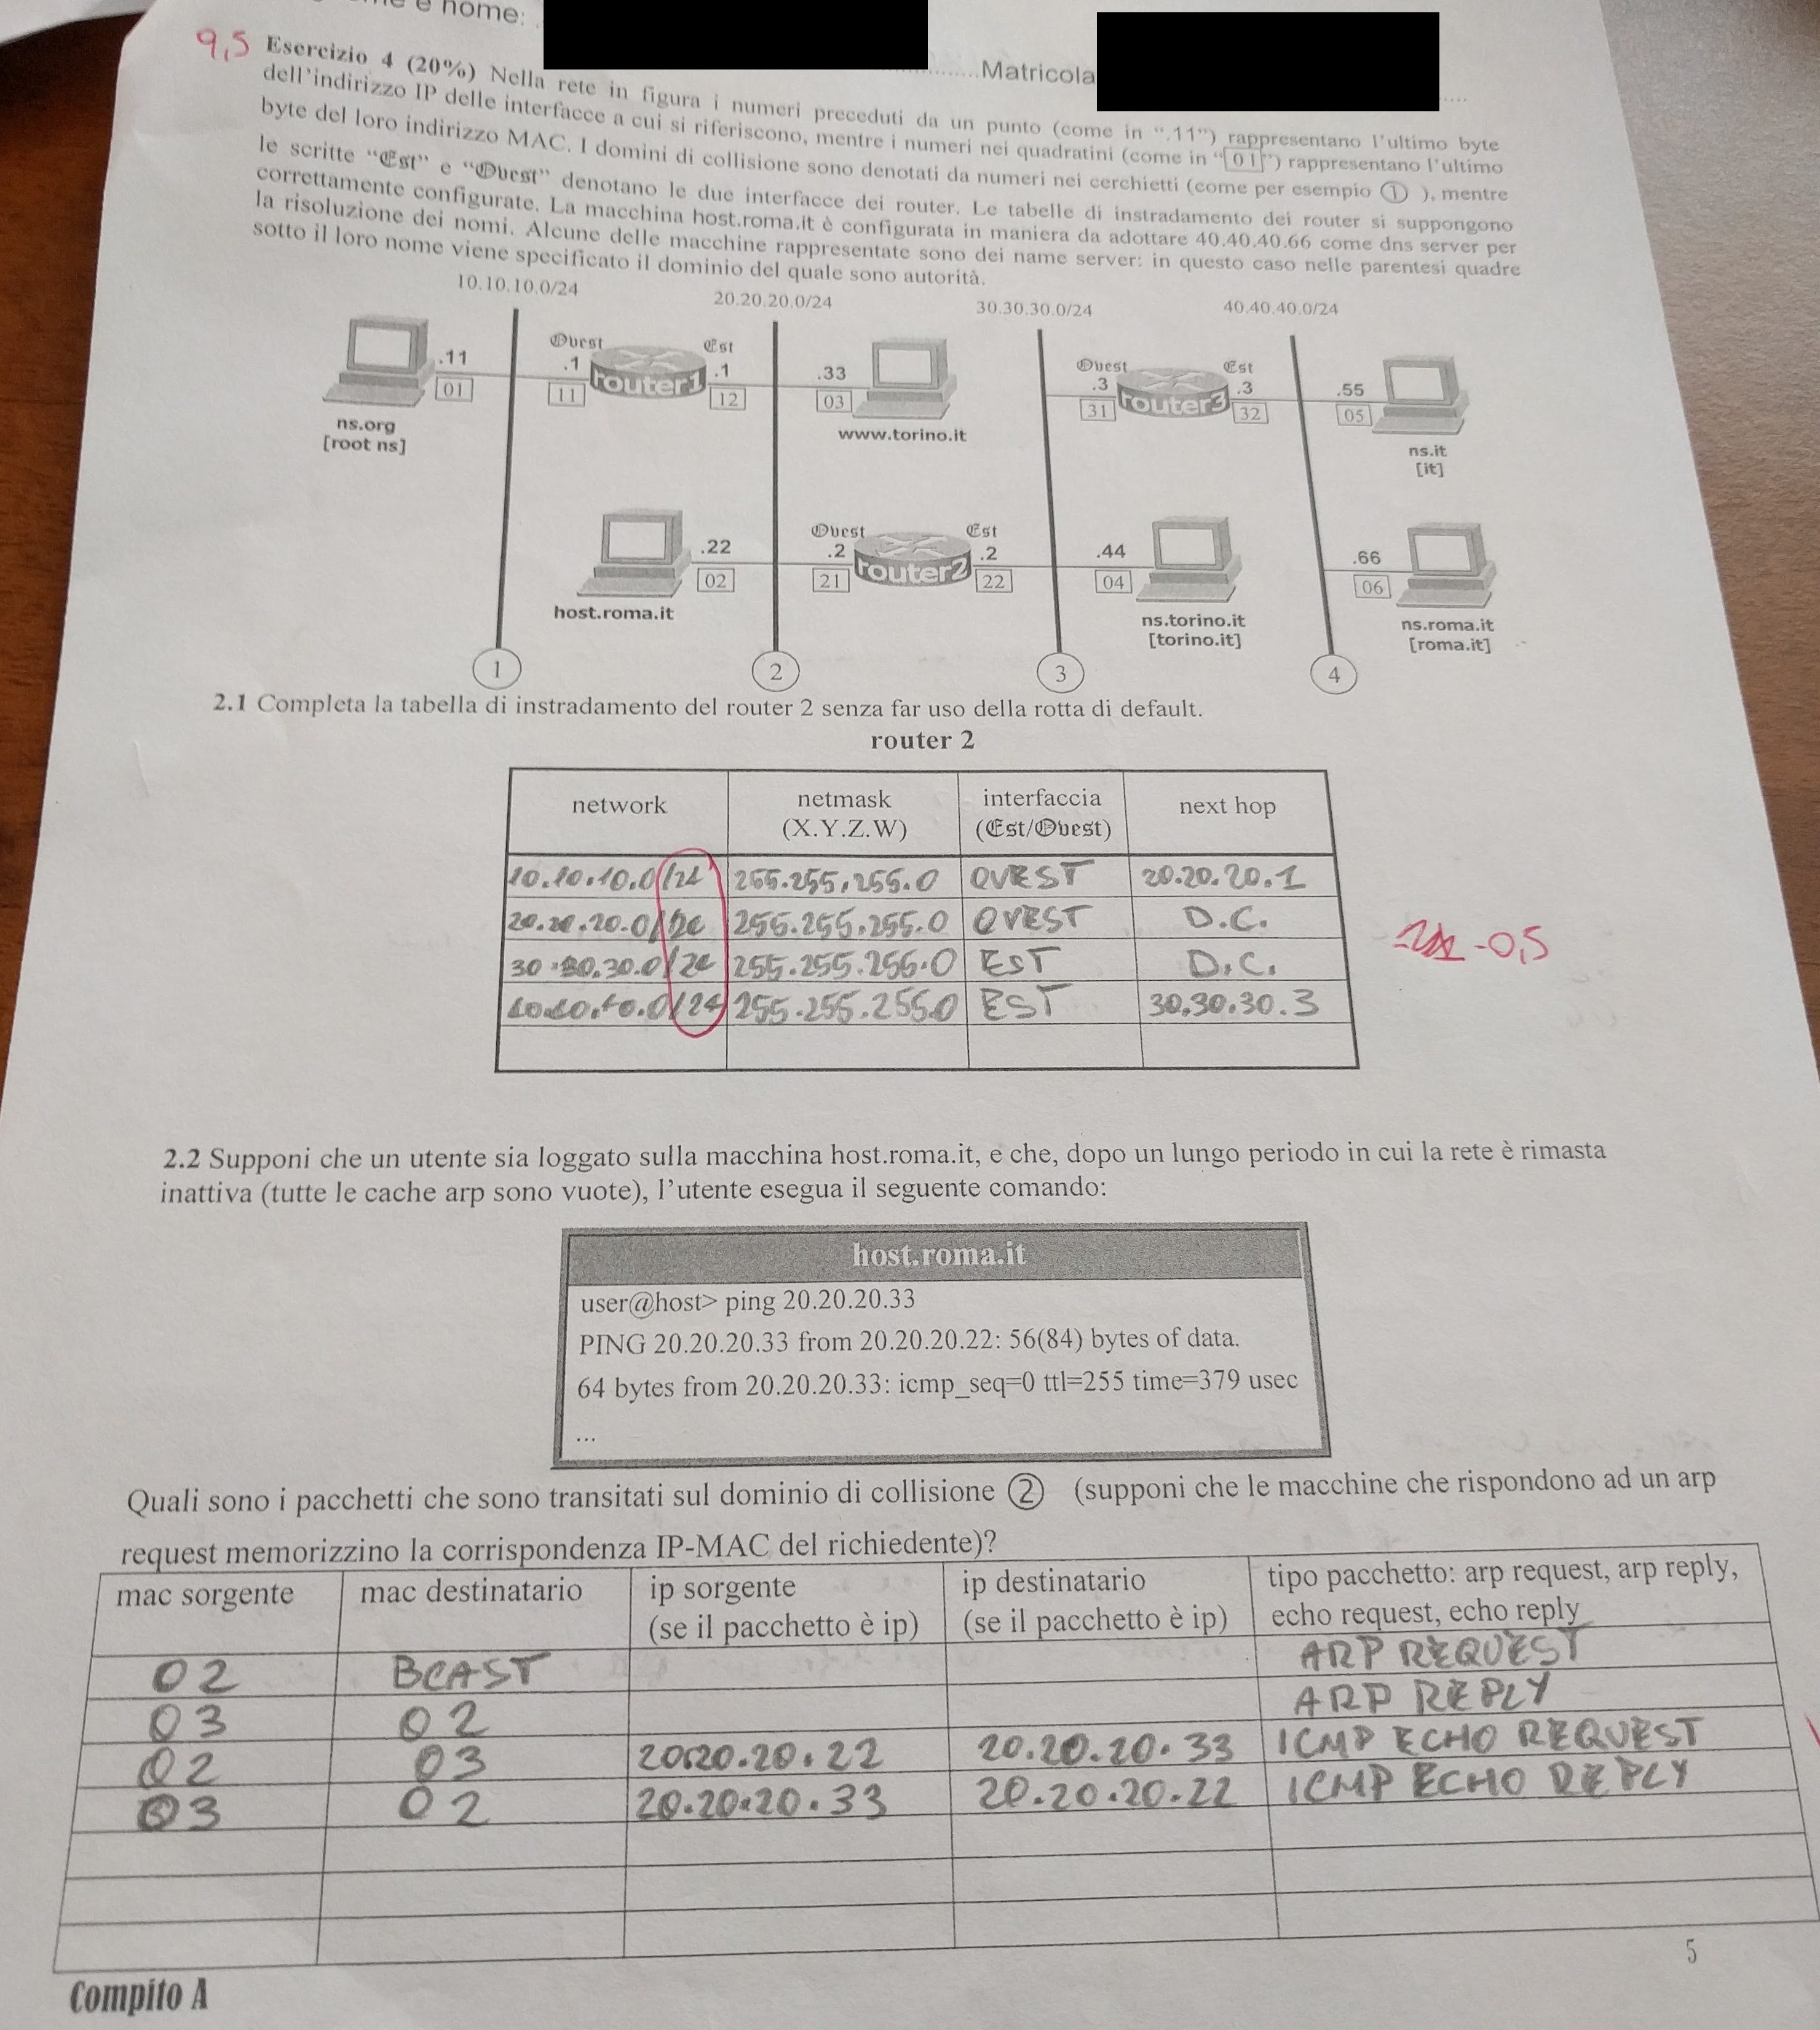 e nome:
Matricola
9,5 Esercizio 4 (20%) Nella rete in figura i numeri preceduti da un punto (come in “.11”) rappresentano l'ultimo byte
dell'indirizzo IP delle interfacce a cui si riferiscono, mentre i numeri nei quadratini (come in “01”) rappresentano l'ultimo
byte del loro indirizzo MAC. I domini di collisione sono denotati da numeri nei cerchietti (come per esempio ① ), mentre
le scritte “Est” e “Ovest” denotano le due interfacce dei router. Le tabelle di instradamento dei router si suppongono
correttamente configurate. La macchina host.roma.it è configurata in maniera da adottare 40.40.40.66 come dns server per
la risoluzione dei nomi. Alcune delle macchine rappresentate sono dei name server: in questo caso nelle parentesi quadre
sotto il loro nome viene specificato il dominio del quale sono autorità.
10.10.10.0/24 20.20.20.0/24 30.30.30.0/24 40.40.40.0/24
Ovest Est Ovest Est
.11 .1 .1 .33 .3 .3 .55
01 11 router1 12 03 31 router3 32 05
ns.org www.torino.it ns.it
[root ns] [it]
Ovest Est
.22 .2 .2 .44 .66
02 21 router2 22 04 06
host.roma.it ns.torino.it ns.roma.it
[torino.it] [roma.it]
1 2 3 4
2.1 Completa la tabella di instradamento del router 2 senza far uso della rotta di default.
router 2
network netmask interfaccia next hop
(X.Y.Z.W) (Est/Ovest)
10.10.10.0/24 255.255.255.0 OVEST 20.20.20.1
20.20.20.0/24 255.255.255.0 OVEST D.C.
30.30.30.0/24 255.255.255.0 EST D.C.
40.40.40.0/24 255.255.255.0 EST 30.30.30.3
-0,5
2.2 Supponi che un utente sia loggato sulla macchina host.roma.it, e che, dopo un lungo periodo in cui la rete è rimasta
inattiva (tutte le cache arp sono vuote), l'utente esegua il seguente comando:
host.roma.it
user@host> ping 20.20.20.33
PING 20.20.20.33 from 20.20.20.22: 56(84) bytes of data.
64 bytes from 20.20.20.33: icmp_seq=0 ttl=255 time=379 usec
...
Quali sono i pacchetti che sono transitati sul dominio di collisione ② (supponi che le macchine che rispondono ad un arp
request memorizzino la corrispondenza IP-MAC del richiedente)?
mac sorgente mac destinatario ip sorgente ip destinatario tipo pacchetto: arp request, arp reply,
(se il pacchetto è ip) (se il pacchetto è ip) echo request, echo reply
02 BCAST ARP REQUEST
03 02 ARP REPLY
02 03 20.20.20.22 20.20.20.33 ICMP ECHO REQUEST
03 02 20.20.20.33 20.20.20.22 ICMP ECHO REPLY
5
Compito A